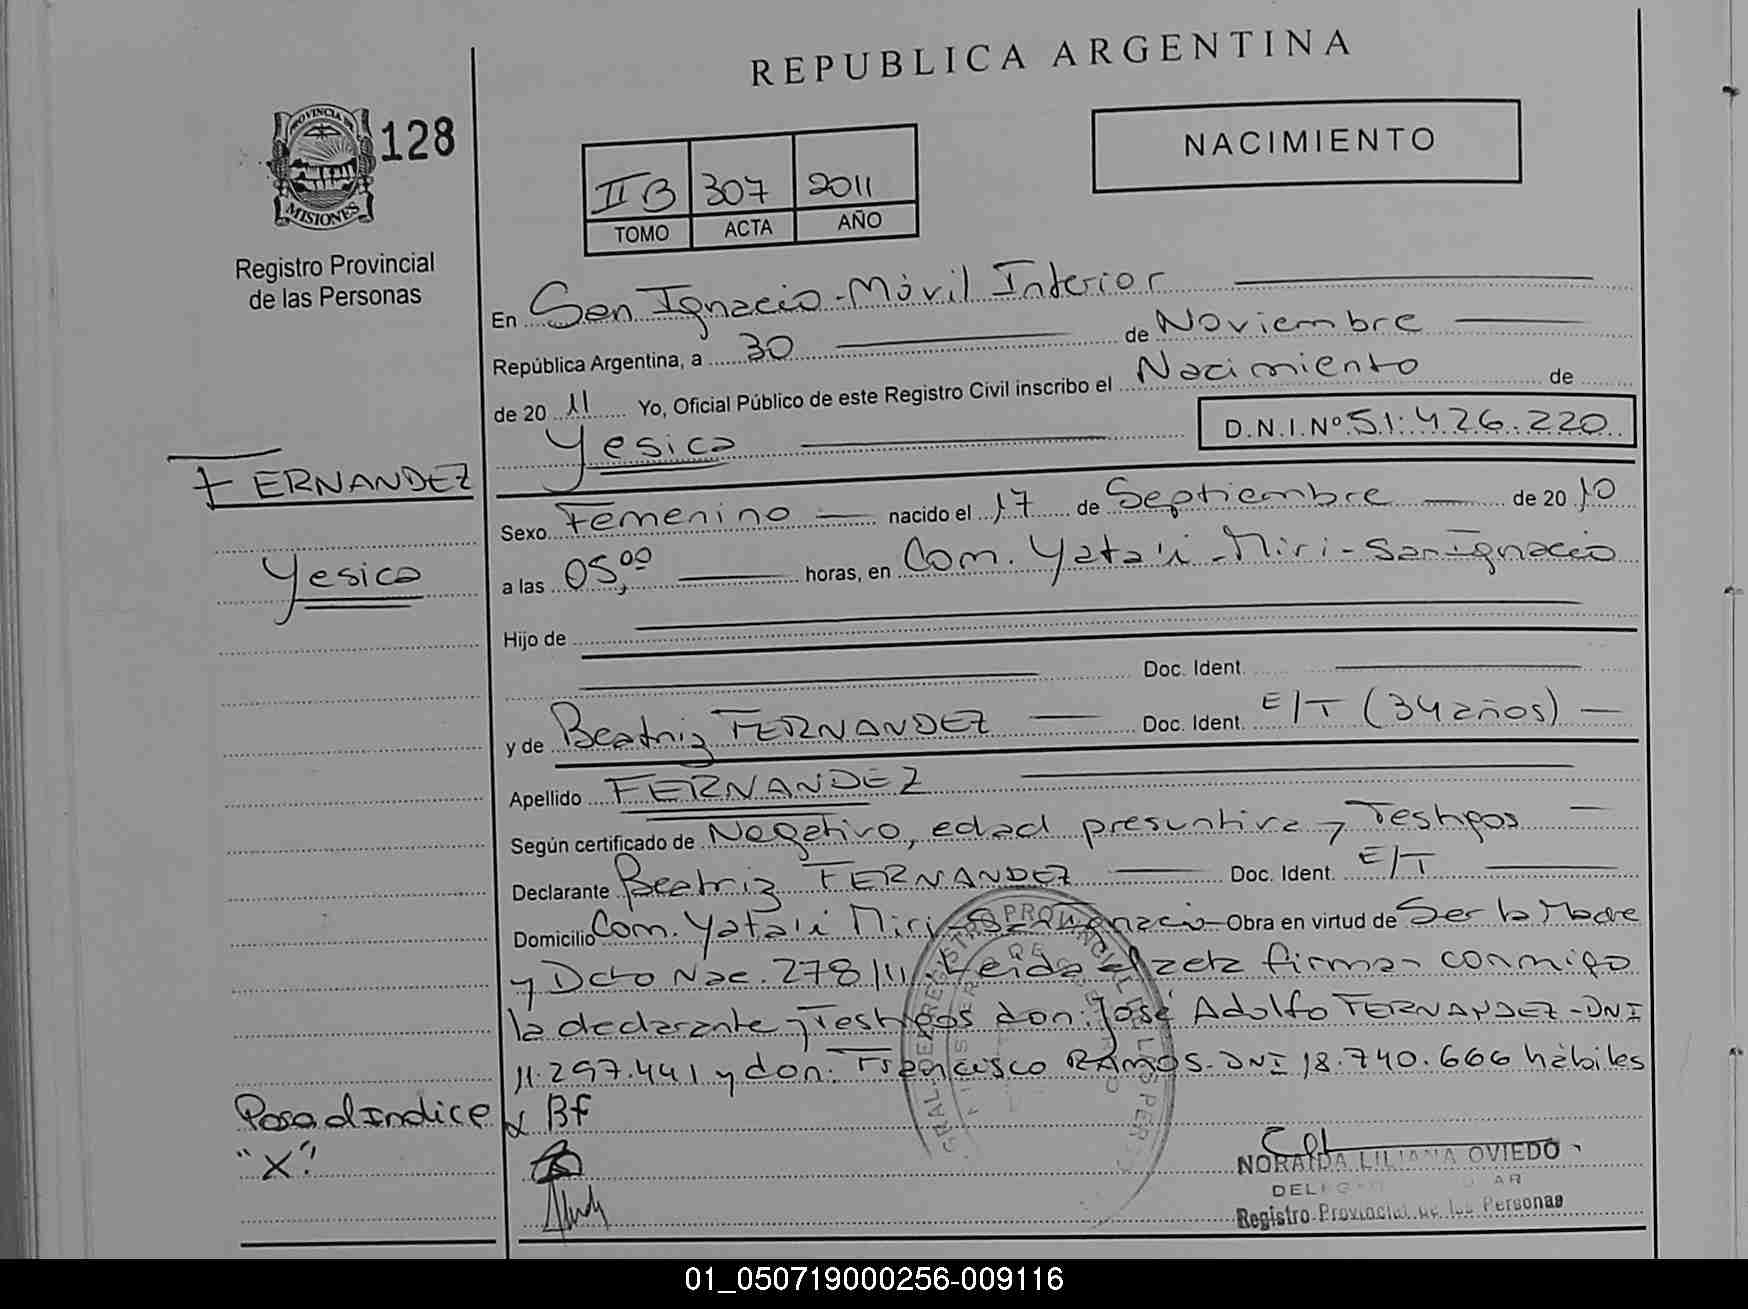 REPUBLICA ARGENTINA
PROVINCIA DE
MISIONES
128
Registro Provincial
de las Personas
II B 307 2011
TOMO ACTA AÑO
NACIMIENTO
En San Ignacio - Móvil Interior
República Argentina, a 30 de Noviembre
de 20 11 Yo, Oficial Público de este Registro Civil inscribo el Nacimiento de
Yesica D.N.I.Nº 51.426.220
FERNANDEZ
Yesica
Sexo Femenino nacido el 17 de Septiembre de 20 10
a las 05,00 horas, en Com. Yataí Miri - San Ignacio
Hijo de
Doc. Ident.
y de Beatriz FERNANDEZ Doc. Ident. E/T (34 años)
Apellido FERNANDEZ
Según certificado de Negativo, edad presuntiva y Testigos
Declarante Beatriz FERNANDEZ Doc. Ident. E/T
Domicilio Com. Yataí Miri - San Ignacio - Obra en virtud de Ser la Madre
y Dcto Nac. 278/11. Leida el acta firman conmigo
la declarante y Testigos don: José Adolfo FERNANDEZ - DNI
11.297.441 y don: Francisco RAMOS - DNI 18.740.666 hábiles
Pasa al Indice
"X"
BF
NORAIDA LILIANA OVIEDO
Registro Provincial de las Personas
01_050719000256-009116